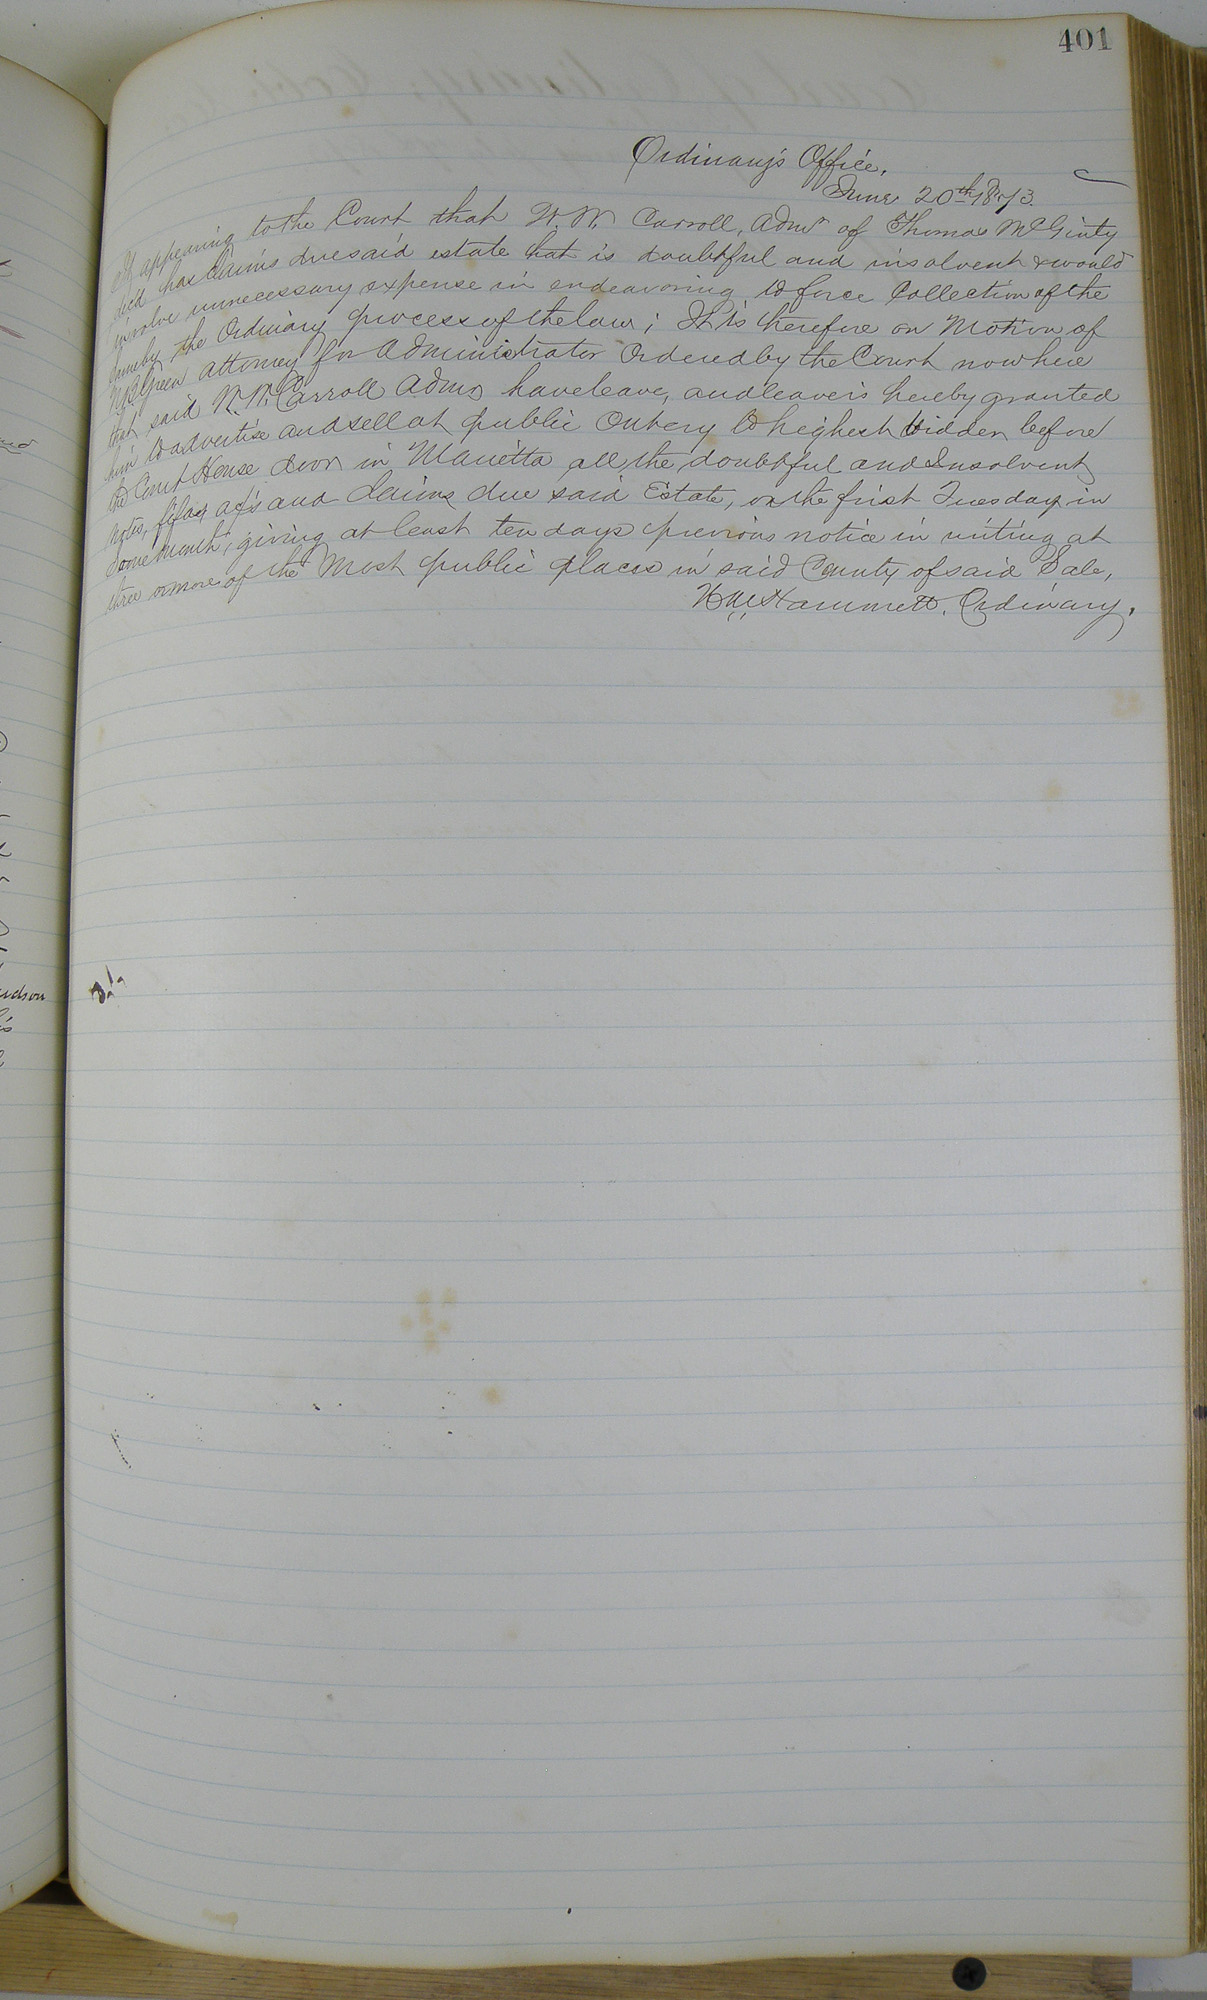 401
Ordinary's Office,
June 20th 1873.
It appearing to the Court that W. W. Carroll, Admr of Thomas McGinty
decd has Claims due said estate that is doubtful and insolvent & would
involve unnecessary expense in endeavoring to force Collection of the
Same by the Ordinary process of the law; It is therefore on Motion of
Green attorney for Administrator Ordered by the Court now here
that said W. W. Carroll Admr have leave, and leave is hereby granted
him to advertise and sell at public Outcry to highest bidder before
the Court House door in Marietta all the doubtful and Insolvent
notes, fifas and Claims due said Estate, on the first Tuesday in
Some month, giving at least ten days previous notice in writing at
three or more of the Most public places in said County of said Sale,
Hammett, Ordinary.
udson